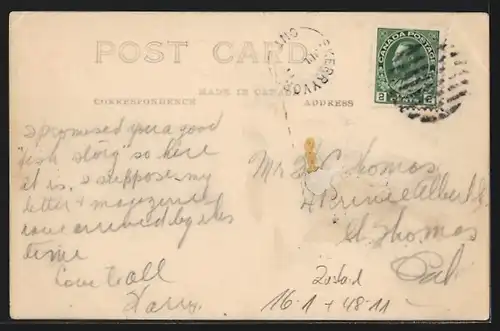 POST CARD
MADE IN CANADA
CORRESPONDENCE ADDRESS
CANADA POSTAGE
2 CENTS 2
I promised you a good
"fish story" so here
it is, I suppose my
letter + magazines
have arrived by this
time
Love to all
Harry.
Mr H C Thomas
4 Prince Albert S
St Thomas
Zustand
16.1 + 48.11